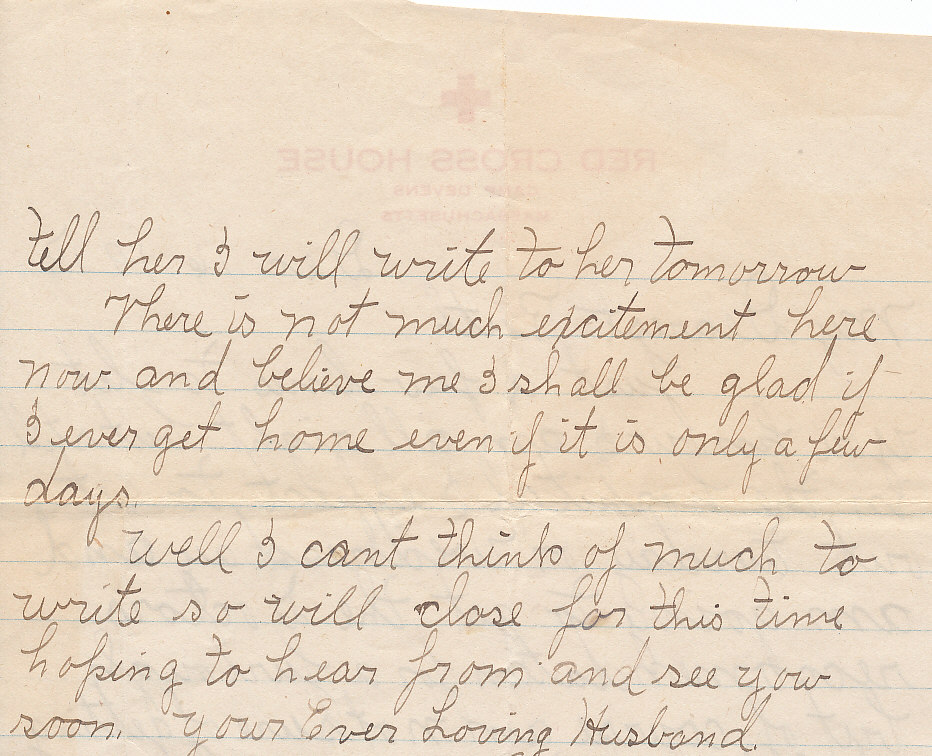 RED CROSS HOUSE
CAMP DEVENS
MASSACHUSETTS
tell her I will write to her tomorrow
There is not much excitement here
now. and believe me I shall be glad if
I ever get home even if it is only a few
days.
Well I cant think of much to
write so will close for this time
hoping to hear from and see you
soon. Your Ever Loving Husband.